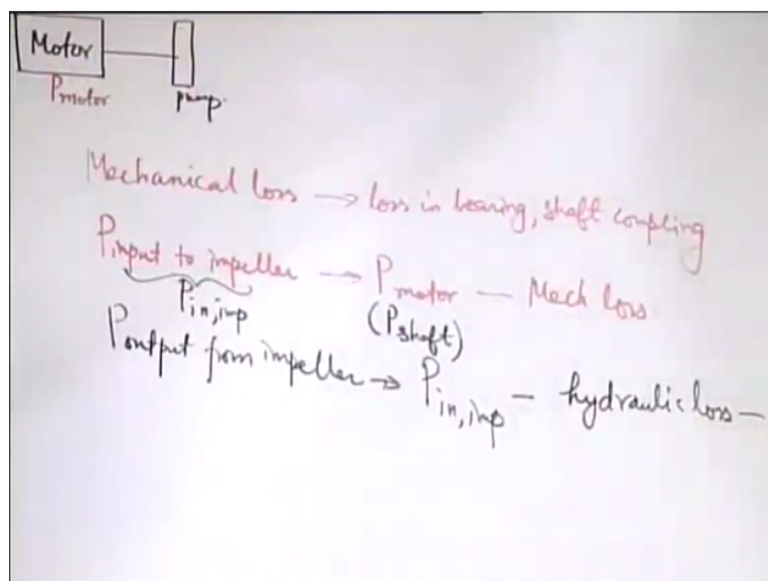 Motor
Pmotor
pump.
Mechanical loss → loss in bearing, shaft coupling
Pinput to impeller → Pmotor — Mech loss
Pin,imp
(Pshaft)
Poutput from impeller → Pin,imp — hydraulic loss —